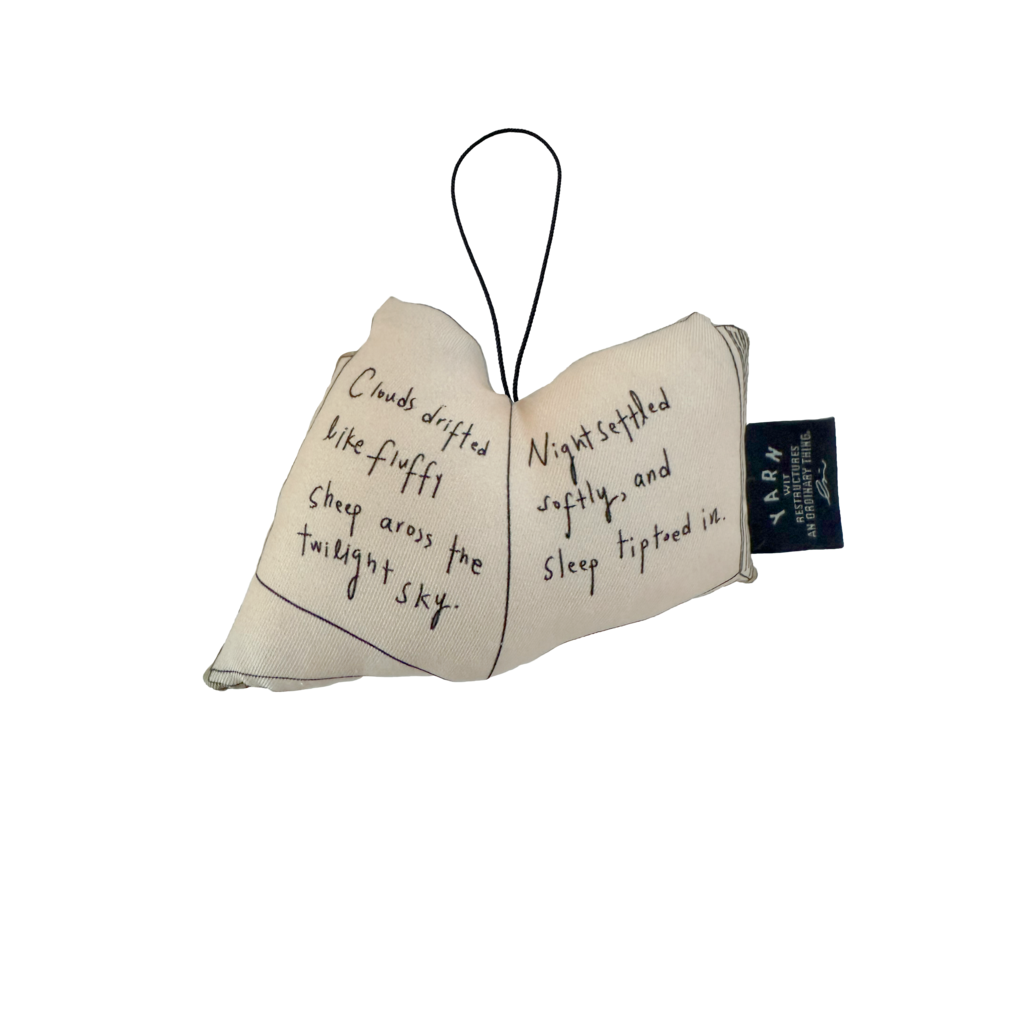 Clouds drifted
like fluffy
sheep aross the
twilight sky.
Night settled
softly, and
sleep tiptoed in.
YARN
WIT
RESTRUCTURES
AN ORDINARY THING.